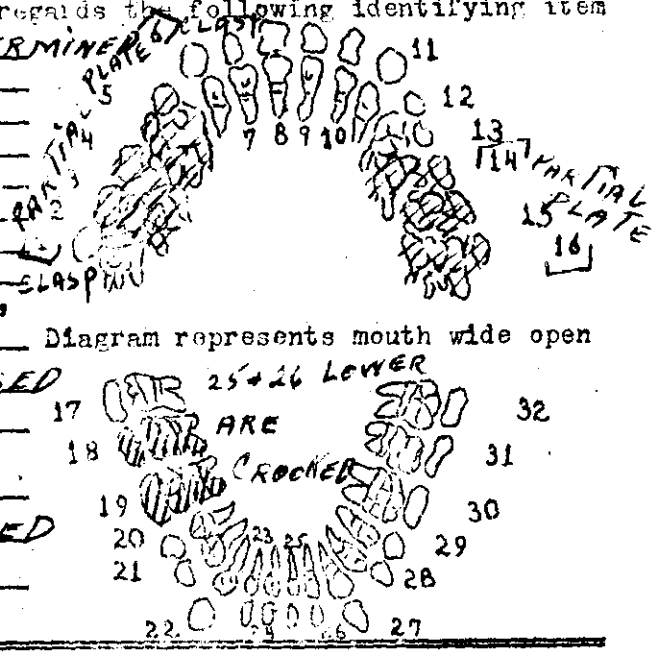 regards the following identifying item
ERMINED
PARTIAL PLATE
CLASP
6
5
4
3
2
CLASP
7 8 9 10
11
12
13
14
15
16
PARTIAL
PLATE
Diagram represents mouth wide open
SED
25+26 LOWER
ARE
CROCKED
17
18
19
20
21
22
23
25
24
26
27
28
29
30
31
32
ED